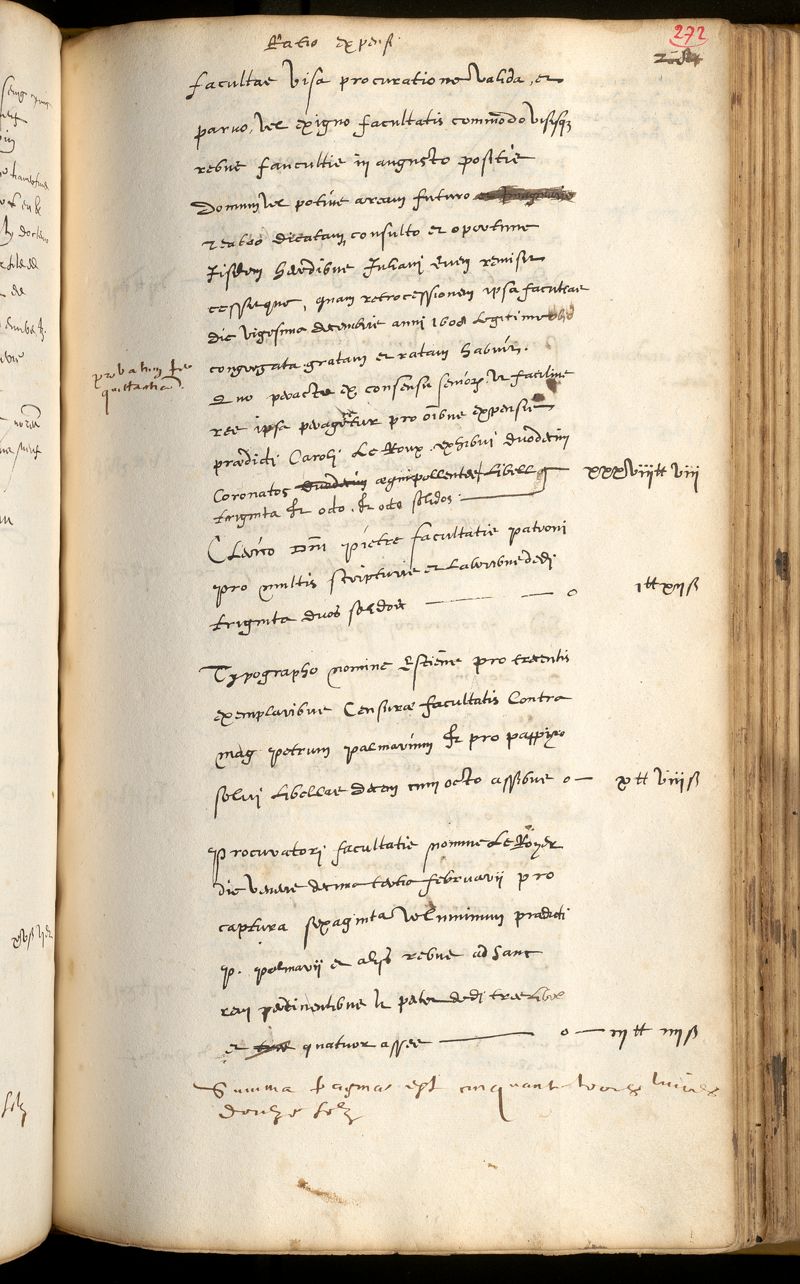 272
Ratio expensi
facultas visa procuratione valida, et
paruo, vel exiguo facultatis commodo visisq
rebus facultis in angusto positis
Domum vel potius aream futuro
dicatam, consulto et oportune
Iisdem hæredibus Iuliani remisit
cessitque, quam retrocessionem ipsa facultas
die vigesima decembris anni 1608 legitime
congregata gratam et ratam habuit.
probatum per
quittantiam.
Quo peracto ex consensu senior. vt facilius
res ipsa perageretur pro oibus expensis
prædicti Caroli Le Roux exhibui duodecim
Coronatos duodecim æquipollentes Libell
triginta & octo, & octo solidos. xxxviii tt viii
Clerico Dni pietre facultatis patroni
pro multis scripturis et laboribus dedi
triginta duos solidos o 1 tt xii ß
Typographo nomine Estiene pro trecentis
exemplaribus Censuræ facultatis Contra
mag petrum palmarium & pro papyro
solui libellas decem cum octo assibus o x tt viii ß
Procuratori facultatis nomine Le Royer
die veneris decima tertia februarii pro
captura sexaginta voluminum prædicti
P. palmarii et aliis rebus ad hanc
rem pertinentibus vt patet dedi tres libel
et quatuor asses o iii tt iiii ß
Summa paginæ est cinquante trois livres
douze solz